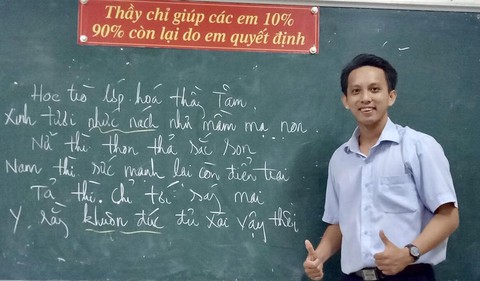 Thầy chỉ giúp các em 10%
90% còn lại do em quyết định
Học trò lớp hoá thầy Tâm
Xinh tươi phúc nạch như mầm mạ non
Nữ thì thon thả sắc son
Nam thì sức mạnh lại còn điển trai
Tả thì chỉ tới sáng mai
Y rằng khuôn đúc đủ xài vậy thôi